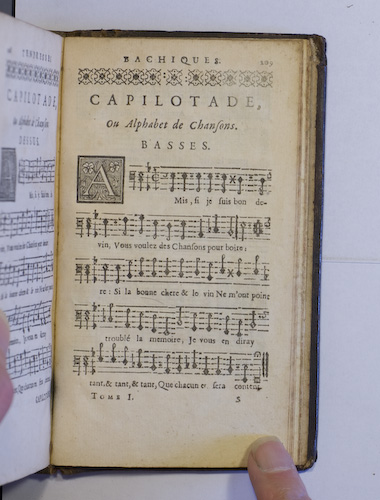 TENDRESSES
CAPILOTADE,
DESSUS.
BACHIQUES. 209
CAPILOTADE,
Ou Alphabet de Chanſons.
BASSES.
A
Mis, ſi je ſuis bon de-
vin, Vous voulez des Chanſons pour boire;
re: Si la bonne chere & le vin Ne m'ont point
troublé la memoire, Je vous en diray
tant, & tant, & tant, Que chacun en ſera content.
TOME I. S